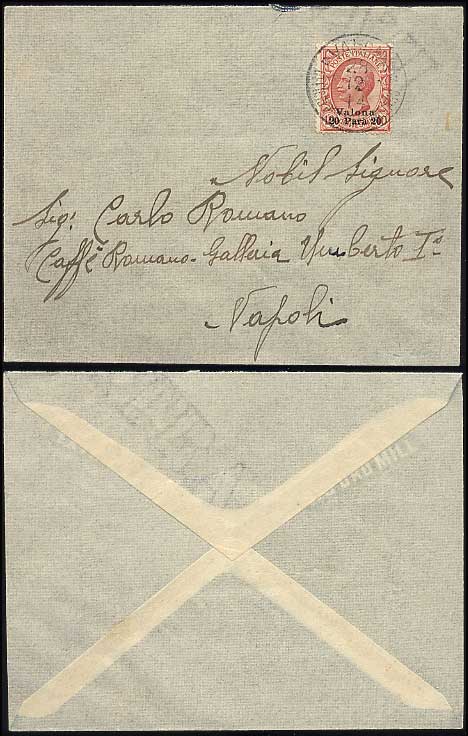 23
12
14
POSTE ITALIANE
Valona
20 Parà 20
Nobil Signore
Sig: Carlo Romano
Caffè Romano - Galleria Umberto Iº
Napoli
MILL